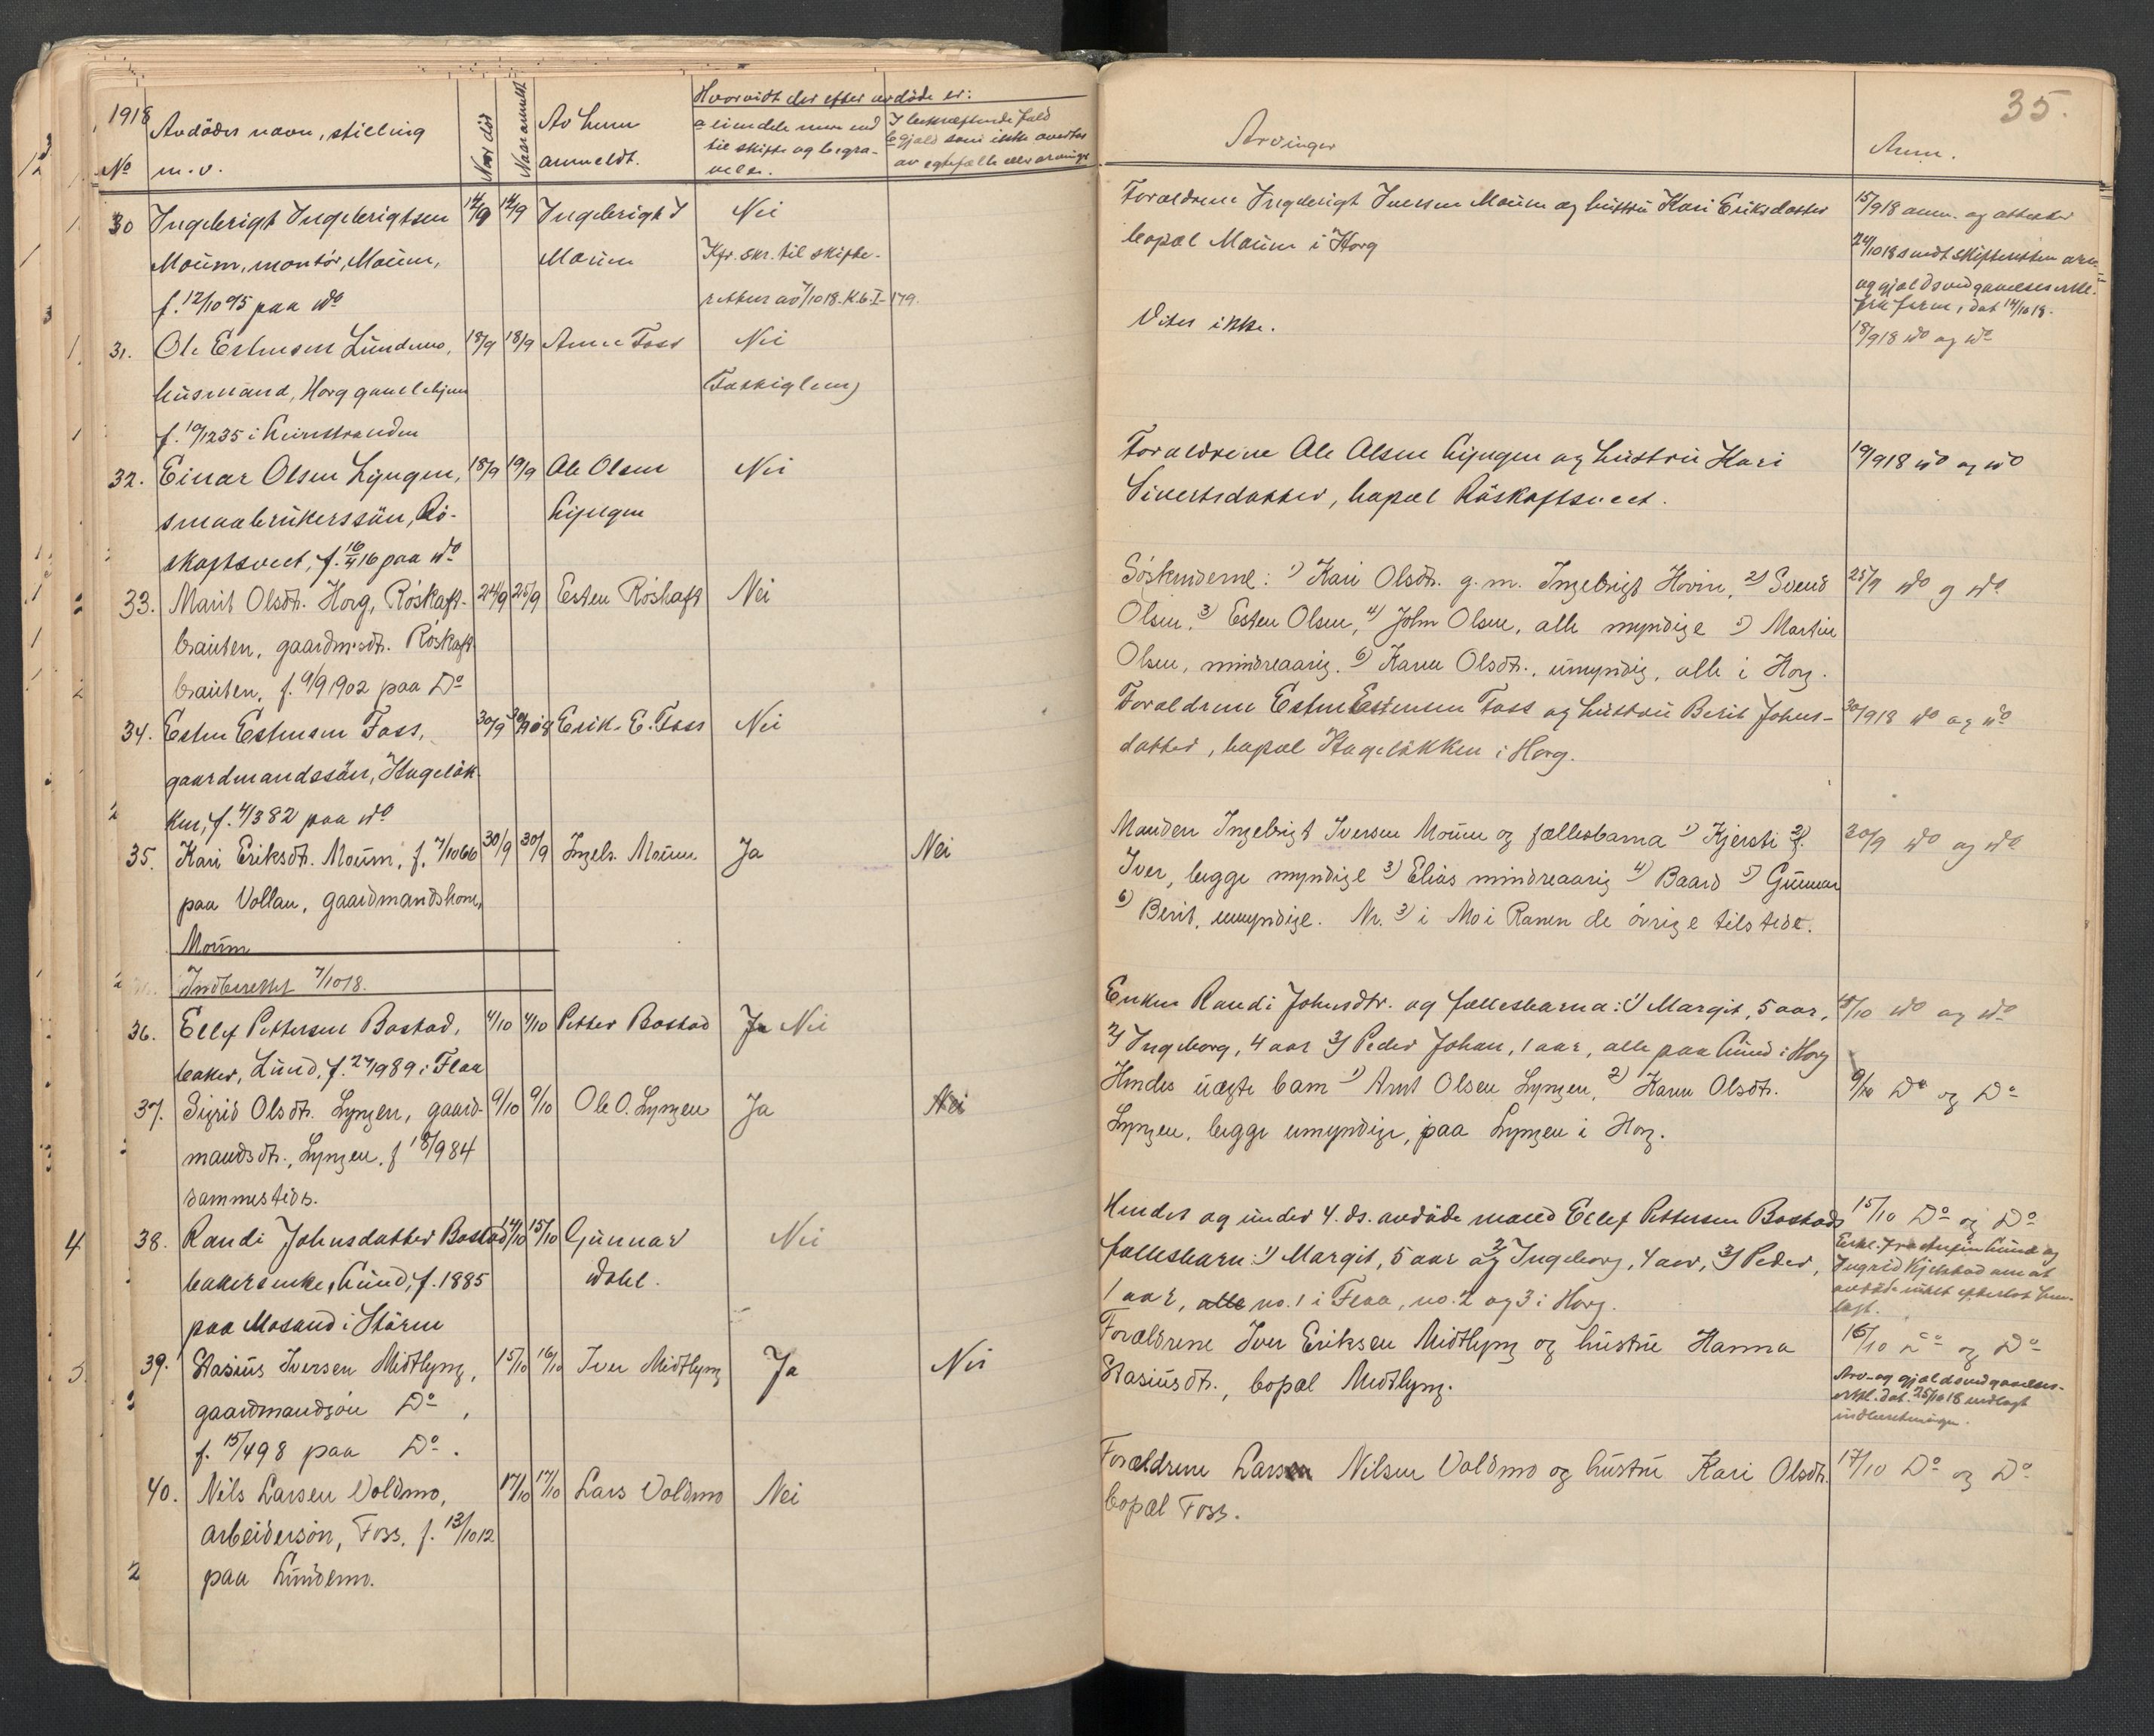 1918
No
Avdödes navn, stilling
m.v.
Naar död
Naar anmeldt
Av hvem
anmeldt.
Hvorvidt der efter avdöde er:
a eiendele mer end
til skifte og begra-
velse.
I bekræftende fald
b gjæld som ikke overtas
av egtefælle eller arvinger
30 Ingebrigt Ingebrigtsen 14/9 14/9 Ingebrigt I Nei
Moum, montör, Moum, Moum Kfr. skr. til skifte-
f. 12/10 95 paa do retten av 7/10 18. K.b. I-179.
31. Ole Estensen Lundemo, 18/9 18/9 Arne Foss Nei
husmand, Horg gamlehjem (Fattiglem)
f. 19/12 35 i Leinstranden
32. Einar Olsen Lyngen, 18/9 19/9 Ole Olsen Nei
smaabrukerssön, Rö- Lyngen
skaftsveet, f. 16/4 16 paa do
33. Marit Olsdtr. Horg, Röskaft- 24/9 25/9 Esten Röskaft Nei
brauten, gaardm.sdtr. Röskaft
brauten, f. 9/9 1902 paa Do
34. Esten Estensen Foss, 30/9 30/9 018 Erik E. Foss Nei
gaardmandssön, Hageløk-
ken, f. 4/3 82 paa do
35. Kari Eriksdtr. Moum, f. 7/10 66 30/9 30/9 Ingebr. Moum Ja Nei
paa Vollan, gaardmandskone,
Moum
Indberettet 7/10 18.
36. Ellef Pettersen Bostad, 4/10 4/10 Petter Bostad Ja Nei
baker, Lund, f. 27/9 89 i Flaa
37. Sigrid Olsdtr. Lyngen, gaard- 9/10 9/10 Ole O. Lyngen Ja Nei
mandsdtr., Lyngen, f 18/9 84
sammesteds.
38. Randi Johnsdatter Bostad 14/10 15/10 Gunnar Nei
bakerenke, Lund, f. 1885 Dahl.
paa Mosand i Stören
39. Stasius Iversen Midtlyng, 15/10 16/10 Iver Midtlyng Ja Nei
gaardmandsön Do,
f. 15/4 98 paa Do.
40. Nils Larsen Voldmo, 17/10 17/10 Lars Voldmo Nei
arbeidersön, Foss, f. 13/10 12
paa Lundemo.
35.
Arvinger
Anm.
Forældrene Ingebrigt Iversen Moum og hustru Kari Eriksdatter 15/9 18 anm. og attester
bopæl Moum i Horg 24/10 18 sendt skifteretten arv-
og gjældsvedgaaelseserkl.
fra foræ., dat 14/10 18.
Vites ikke. 18/9 18 do og do
Forældrene Ole Olsen Lyngen og hustru Kari 19/9 18 do og do
Sivertsdatter, bopæl Röskaftsveet.
Söskenderne: 1) Kari Olsdtr. g.m. Ingebrigt Hovin, 2) Svend 25/9 do og do
Olsen, 3) Esten Olsen, 4) John Olsen, alle myndige 5) Martin
Olsen, mindreaarig. 6) Karen Olsdtr., umyndig, alle i Horg.
Forældrene Esten Estensen Foss og hustru Berit Johns- 30/9 18 do og do
datter, bopæl Hageløkken i Horg.
Manden Ingebrigt Iversen Moum og fællesbarna 1) Kjersti 2) 30/9 do og do
Iver, begge myndige 3) Elias mindreaarig 4) Baard 5) Gunnar
6) Berit, umyndige. Nr. 3) i Mo i Ranen de övrige tilstede.
Enken Randi Johnsdtr. og fællesbarna: 1) Margit, 5 aar, 4/10 do og do
2) Ingeborg, 4 aar 3) Peder Johan, 1 aar, alle paa Lund i Horg
Hendes uægte barn 1) Arnt Olsen Lyngen, 2) Karen Olsdtr. 9/10 Do og Do
Lyngen, begge umyndige, paa Lyngen i Horg.
Hendes og under 4. ds. avdöde mand Ellef Pettersen Bostads 15/10 Do og Do
fællesbarn: 1) Margit, 5 aar og 2) Ingeborg, 4 aar, 3) Peder, Erkl. fra Lund og
1 aar, alle no. 1 i Flaa, no. 2 og 3 i Horg. Ingrid Kjelstad om at
avdöde intet efterlot
Forældrene Iver Eriksen Midtlyng og hustru Hanna 16/10 Do og Do
Stasiusdtr., bopæl Midtlyng. Arv- og gjældsvedgaaelses-
erkl. dat. 25/10 18 vedlagt
indberetningen.
Forældrene Lars Nilsen Voldmo og hustru Kari Olsdtr. 17/10 Do og Do
bopæl Foss.